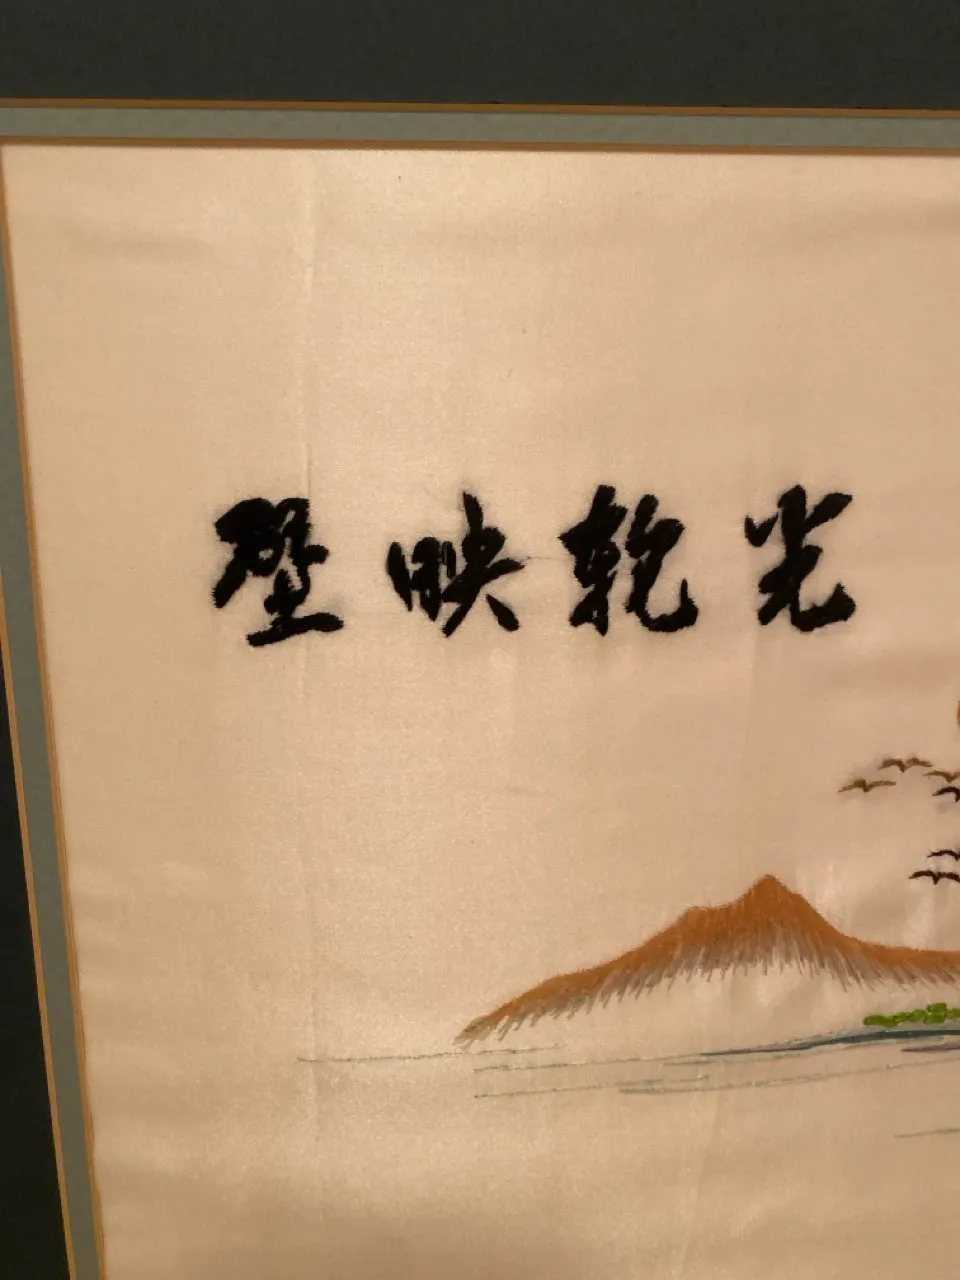 光乾映壁